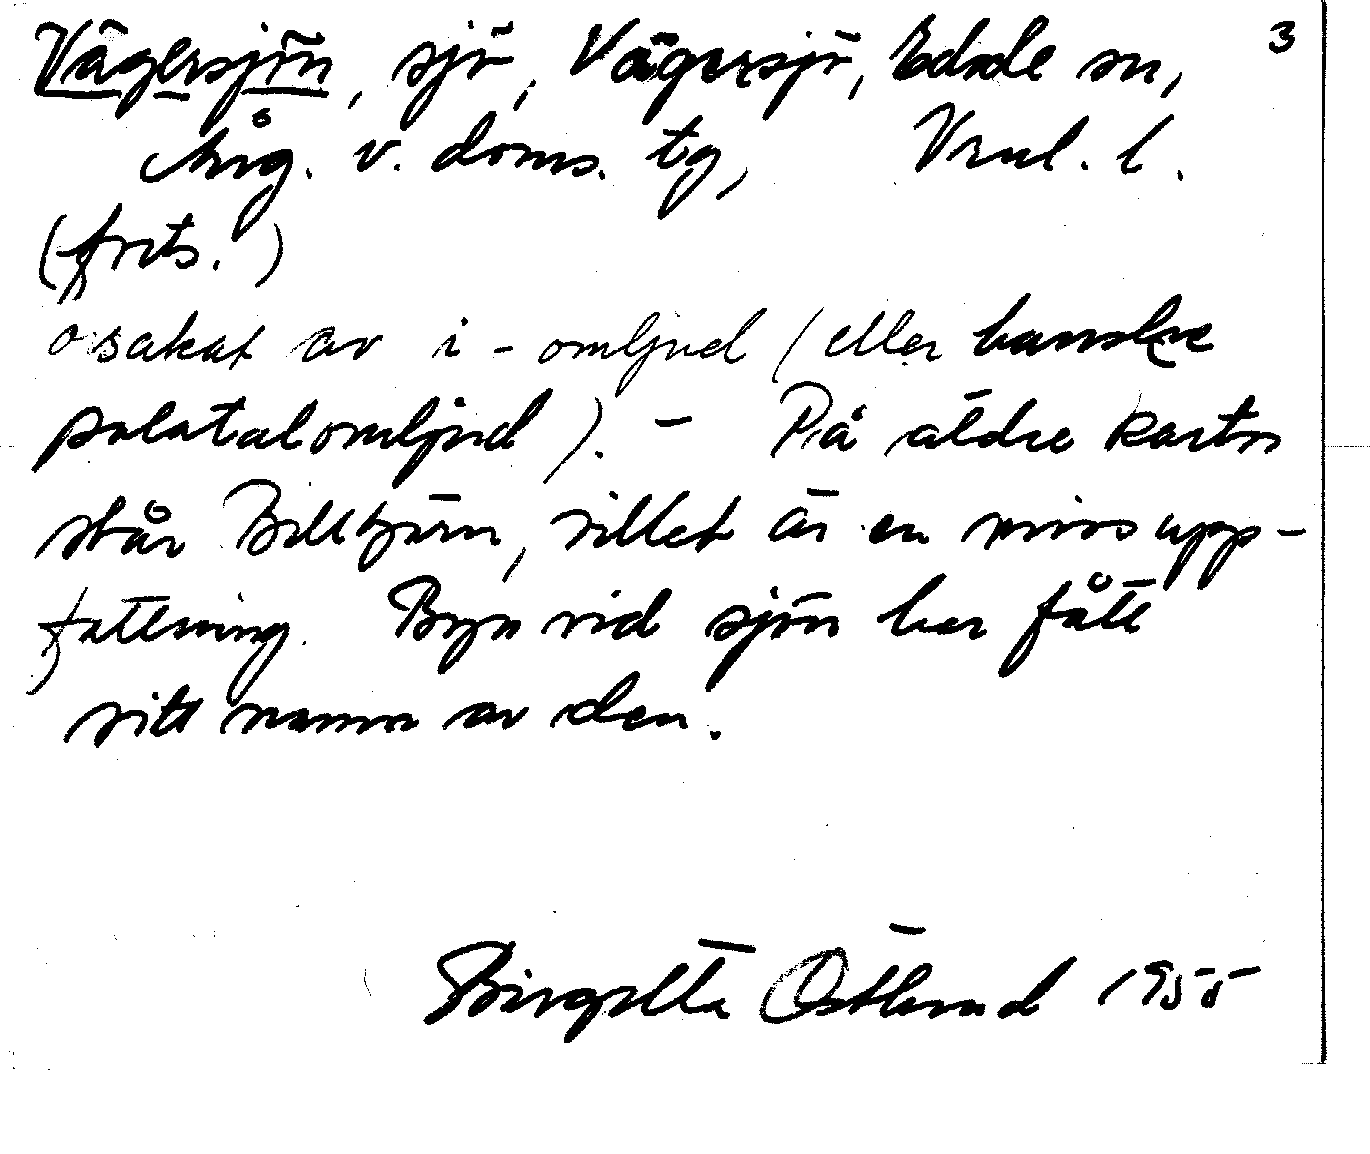 Vägersjön, sjö, Vägersjö, Edsele sn, 3
Ång. v. doms. tg, Vnl. l.
(forts.)
osakat av i-omljud (eller kanske
palatalomljud). - På äldre kartor
står Billtjärn, vilket är en missupp-
fattning. Byn vid sjön har fått
sitt namn av den.
Birgitta Östlund 1955